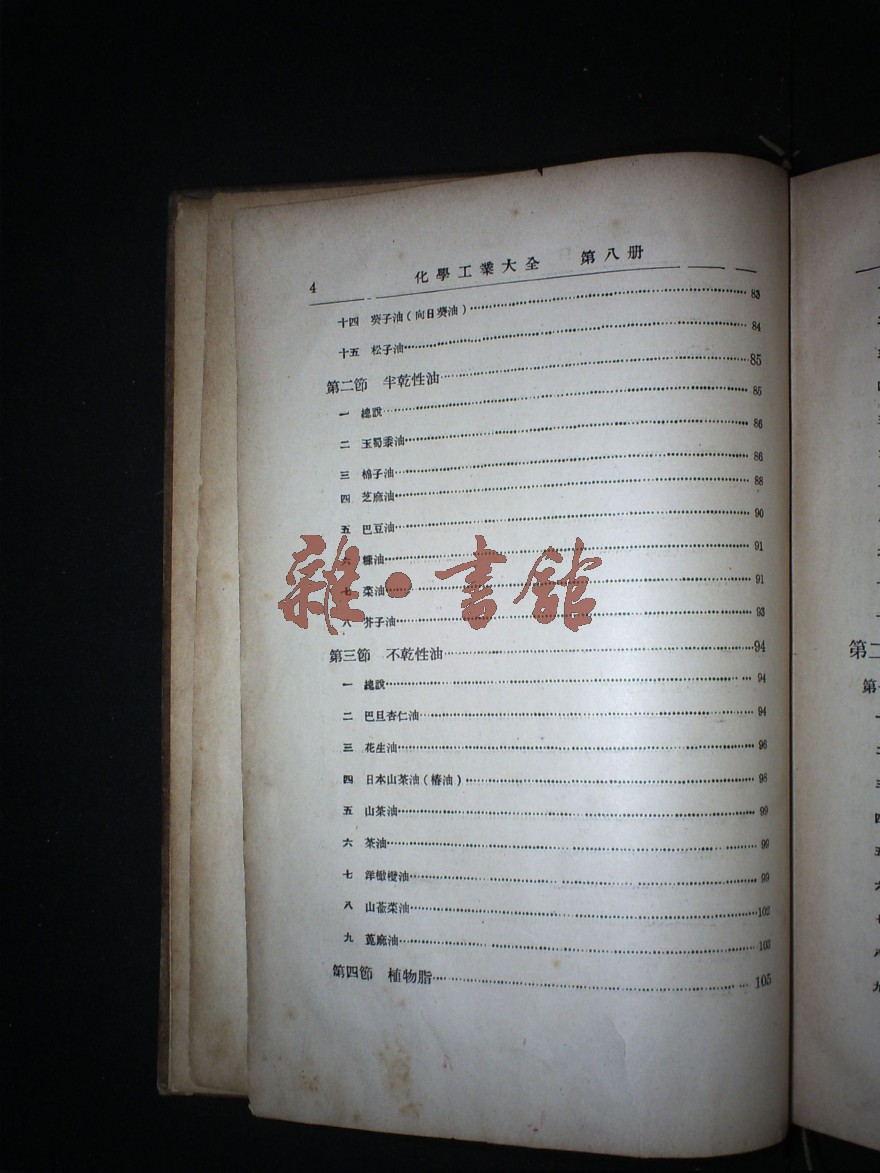 4 化學工業大全 第八册
十四 葵子油(向日葵油) 83
十五 松子油 84
第二節 半乾性油 85
一 總說 85
二 玉蜀黍油 86
三 棉子油 86
四 芝麻油 88
五 巴豆油 90
六 糠油 91
七 菜油 91
八 芥子油 93
第三節 不乾性油 94
一 總說 94
二 巴旦杏仁油 94
三 花生油 96
四 日本山茶油(椿油) 98
五 山茶油 99
六 茶油 99
七 洋橄欖油 99
八 山萮菜油 102
九 蓖麻油 103
第四節 植物脂 105
雜·書館
第二
第